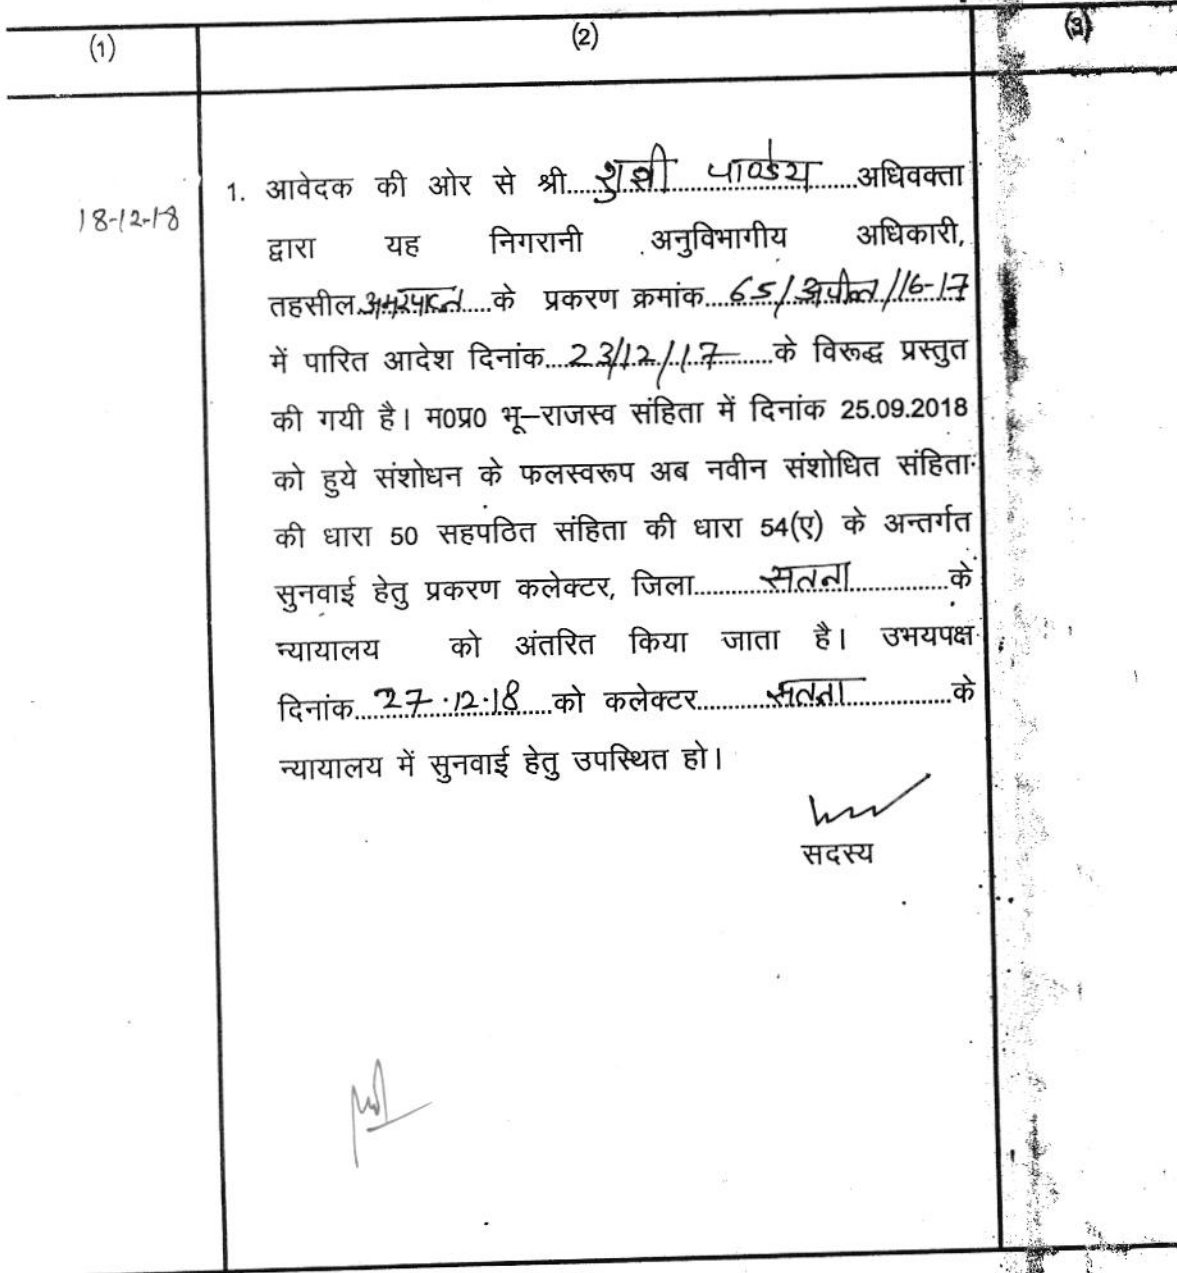 (1) (2) (3)
18-12-18
1. आवेदक की ओर से श्री.....शुश्री पाण्डेय.....अधिवक्ता
द्वारा यह निगरानी अनुविभागीय अधिकारी,
तहसील.अमरपाटन.....के प्रकरण क्रमांक...65/अपील/16-17
में पारित आदेश दिनांक...23/12/17.....के विरूद्ध प्रस्तुत
की गयी है। म0प्र0 भू–राजस्व संहिता में दिनांक 25.09.2018
को हुये संशोधन के फलस्वरूप अब नवीन संशोधित संहिता
की धारा 50 सहपठित संहिता की धारा 54(ए) के अन्तर्गत
सुनवाई हेतु प्रकरण कलेक्टर, जिला.......सतना.......के
न्यायालय को अंतरित किया जाता है। उभयपक्ष
दिनांक...27.12.18....को कलेक्टर.......सतना.......के
न्यायालय में सुनवाई हेतु उपस्थित हो।
सदस्य